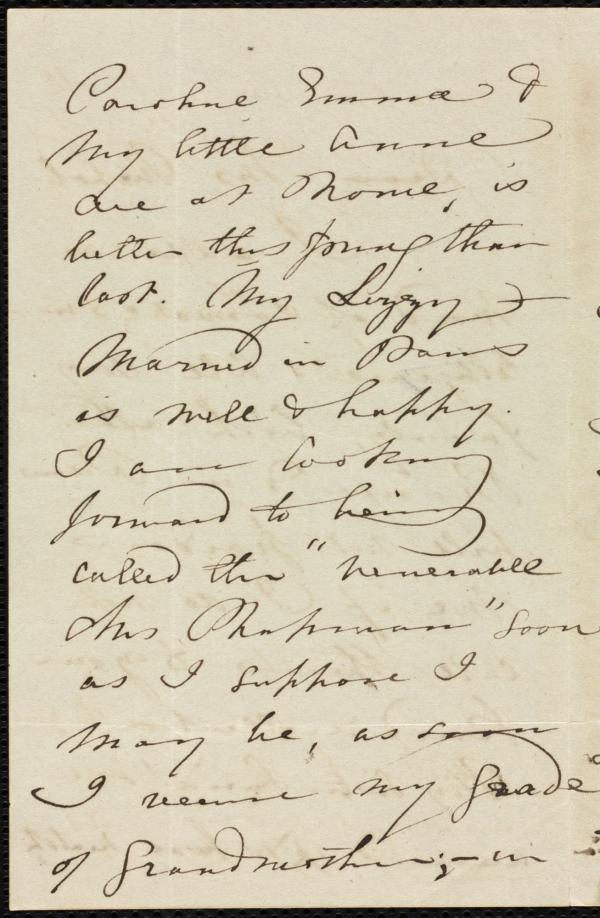 Caroline Emma &
my little Anne
are at Home, is
better this spring than
last. My Lizzy
Married in Paris
is well & happy.
I am looking
forward to being
called the "venerable
Mrs Chapman" soon
as I suppose I
may be, as soon
I receive my grade
of Grandmother; – in